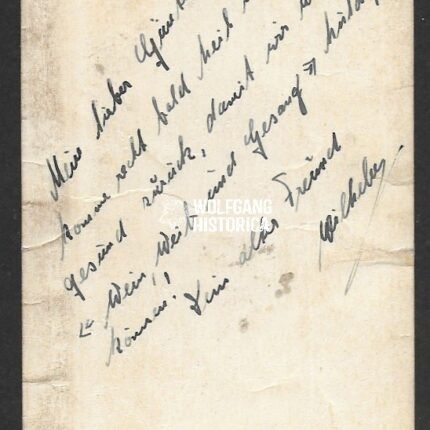 Mein lieber Günt
komme recht bald heil
gesund zurück, damit wir
"Wein, Weib und Gesang"
können!
Dein alter Freund
Wilhelm
WOLFGANG
HISTORICA